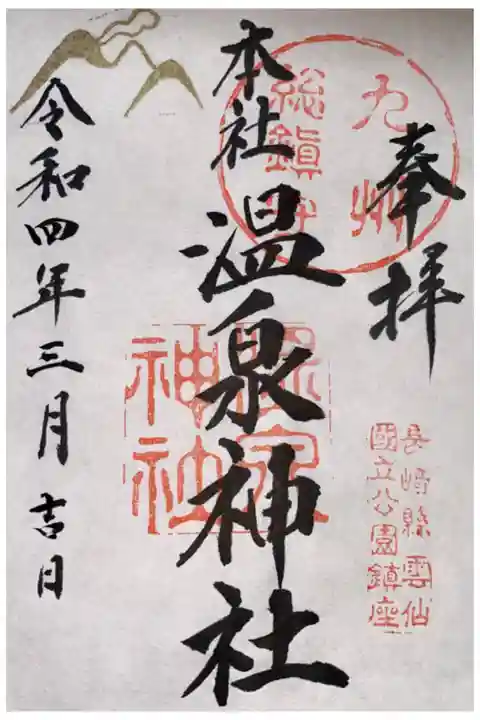 奉拝
九州
総鎮守
本社 温泉神社
温泉
神社
長崎縣雲仙
國立公園鎮座
令和四年三月吉日